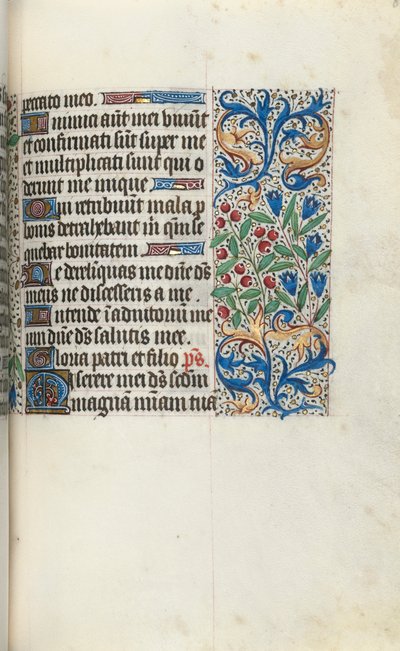 peccato meo.
Inimici aūt mei viuūt
et confirmati sūt super me
et multiplicati sunt qui o
derunt me inique
Qui retribuūt mala p
bonis detrahebant m̄ qm̄ se
quebar bonitatem
Ne derelinquas me dn̄e ds̄
meus ne discesseris a me.
Intende ī adiutoriū me
um dn̄e ds̄ salutis mee.
Gloria patri et filio p̄s.
Miserere mei ds̄ scdm̄
magnā miam̄ tuā